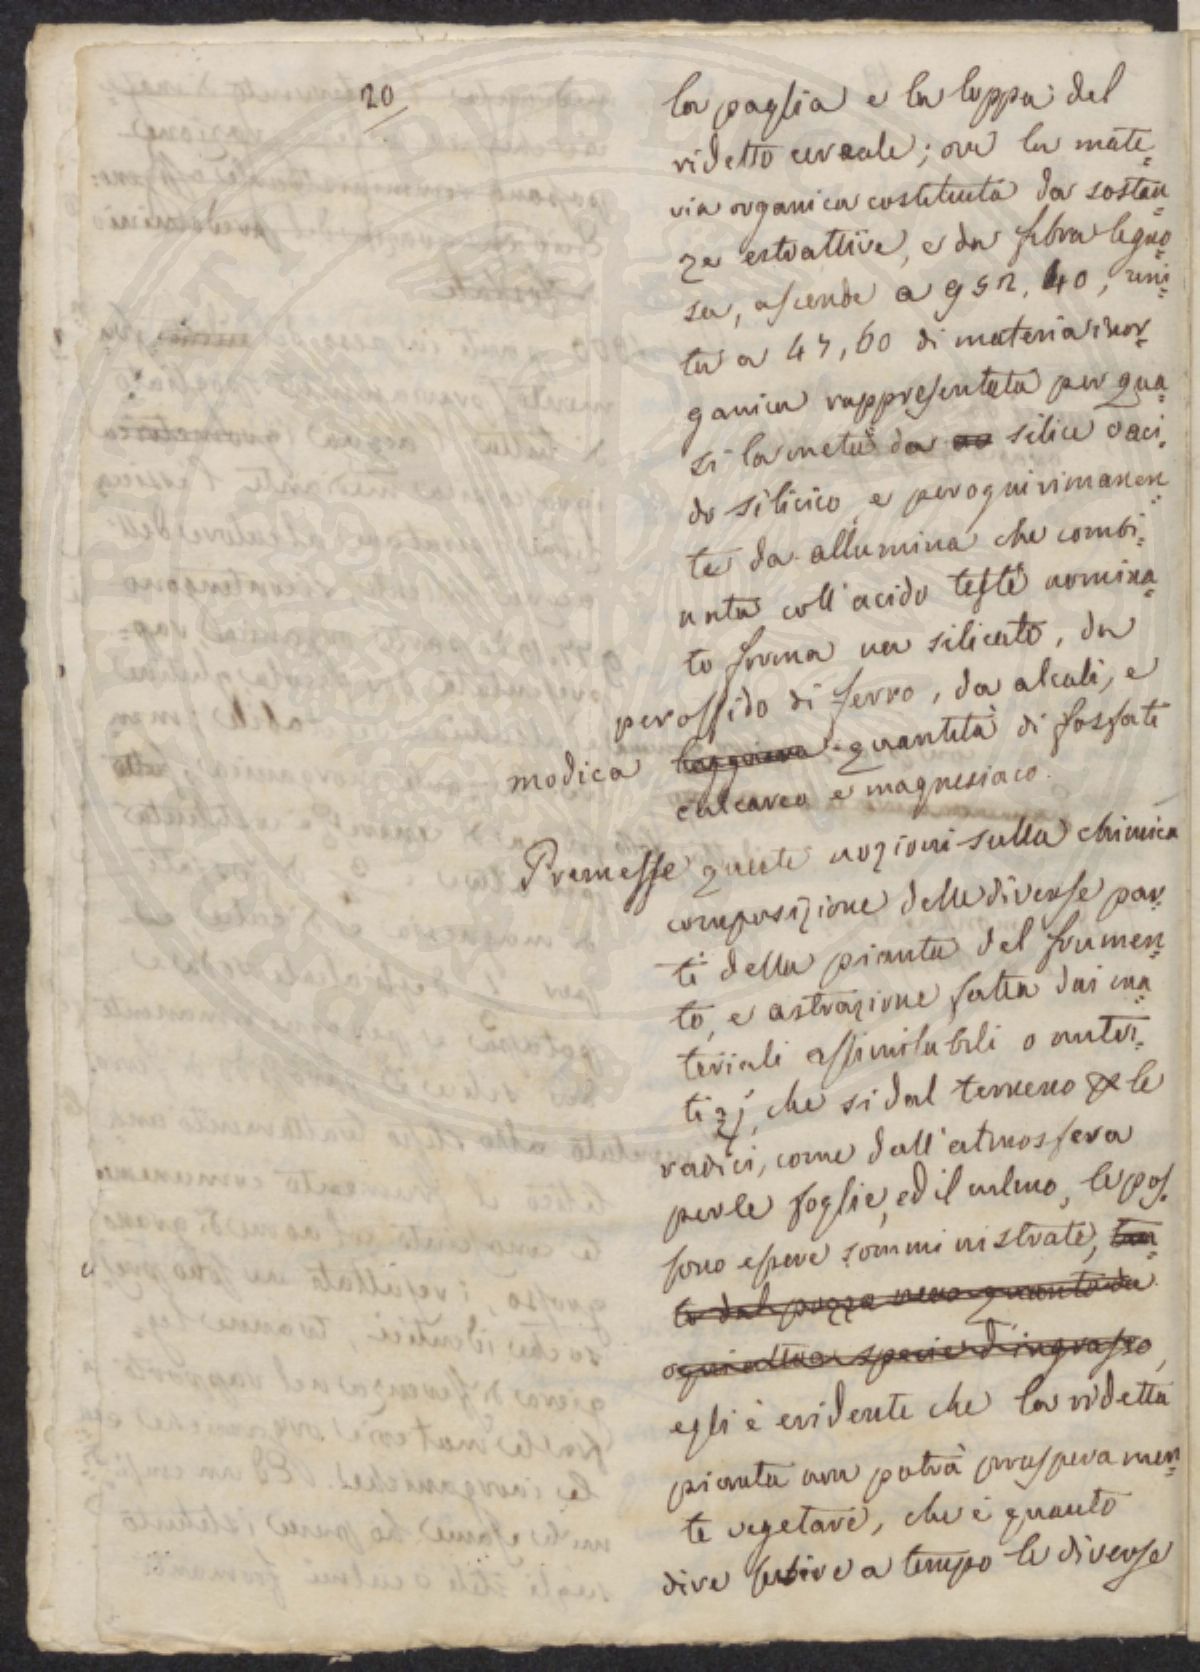 20
la paglia e la loppa del
ridetto cereale; ove la mate=
ria organica costituita da sostan=
ze estrattive, e da fibra legno=
sa, ascende a 952, 40, uni=
ta a 47, 60 di materia inor=
ganica rappresentata per qua=
si la metà da silice o aci=
do silicico, e per ogni rimanen=
te da allumina che combi=
nata coll'acido testè nomina=
to forma un silicato, da
perossido di ferro, da alcali, e
modica quantità di fosfati
calcareo e magnesiaco.
Premesse queste nozioni sulla chimica
composizione delle diverse par=
ti della pianta del frumen=
to, e astrazione fatta dai ma=
teriali assimilabili o nutri=
tizj, che si dal terreno le
radici, come dall'atmosfera
per le foglie, ed il culmo, le pos=
sono essere somministrate, tan=
to dal pozzo nero quanto da
ogni altra specie d'ingrasso,
egli è evidente che la ridetta
pianta non potrà prosperamen=
te vegetare, che è quanto
dire subire a tempo le diverse